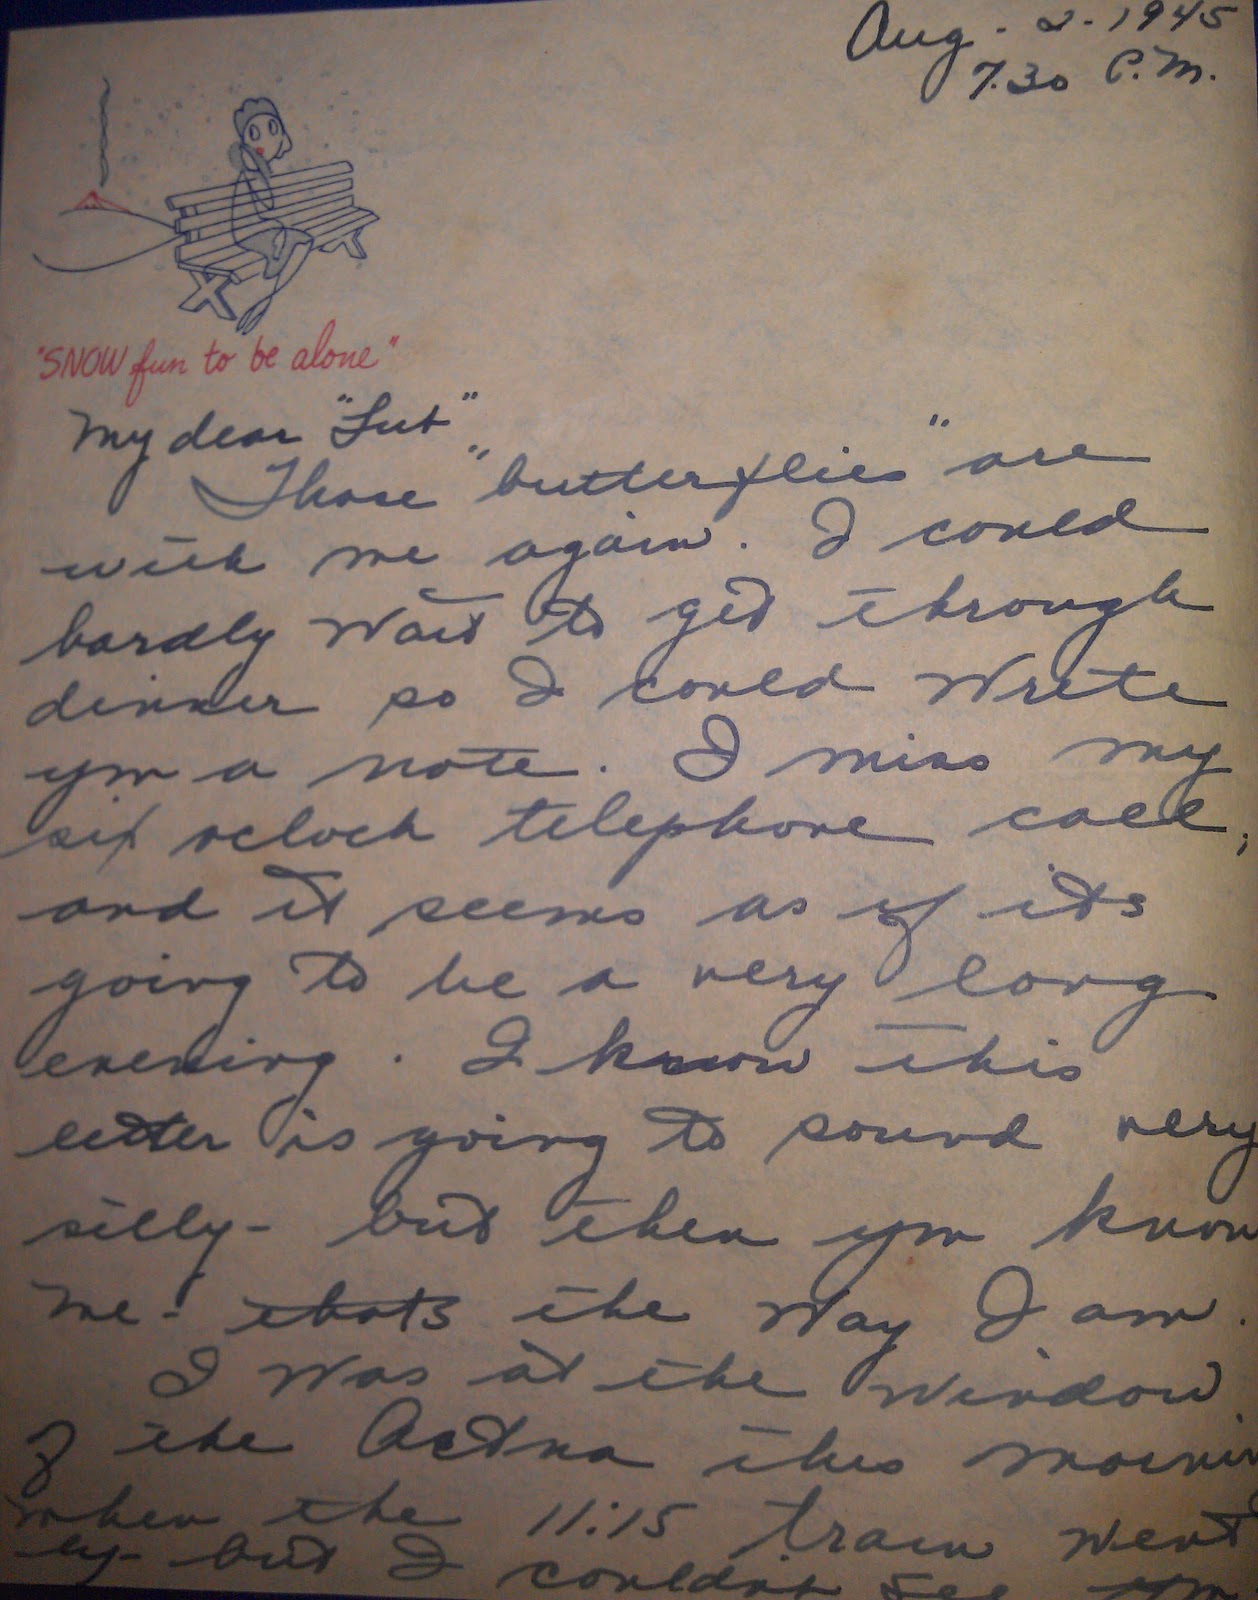 Aug. 2. 1945
7.30 P.M.
"SNOW fun to be alone"
My dear "Lut",
Those "butterflies" are
with me again. I could
hardly wait to get through
dinner so I could write
you a note. I miss my
six oclock telephone call,
and it seems as if it's
going to be a very long
evening. I know this
letter is going to sound very
silly - but then you know
me - thats the way I am.
I was at the window
of the Aetna this mornin
when the 11:15 train went
by - but I couldn't see you